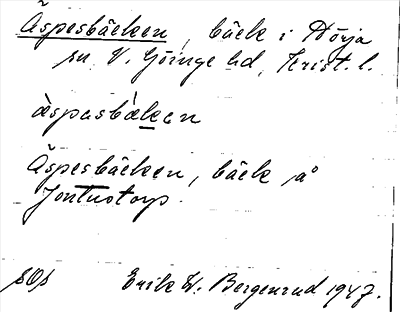 Äspesbäcken, bäck i Nörja
sn V. Göinge hd, Krist. l.
äspasbäkan
Äspesbäcken, bäck på
Jontustorp.
sOs Erik W. Bergenrud 1947.